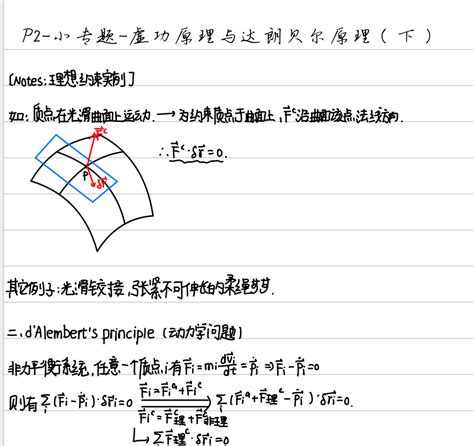 P2-小专题-虚功原理与达朗贝尔原理(下)
[Notes:理想约束实例]
如:质点在光滑曲面上运动.→为约束质点于曲面上,F⃗ᶜ沿曲面该点法线方向.
F⃗ᶜ
∴F⃗ᶜ·δr⃗=0.
P
δr⃗
其它例子:光滑铰接,张紧不可伸长的柔绳等等.
二.d'Alembert's principle (动力学问题)
非力平衡系统,任意一个质点i有F⃗i=mi dv⃗i/dt=Ṗ⃗i⇒F⃗i-Ṗ⃗i=0
则有∑i(F⃗i-Ṗ⃗i)·δr⃗i=0 F⃗i=F⃗iᵃ+F⃗iᶜ ∑i(F⃗iᵃ+F⃗理ᶜ-Ṗ⃗i)·δr⃗i=0.
F⃗iᶜ=F⃗理ᶜ+F⃗非理ᶜ
↳∑F⃗理ᶜ·δr⃗i=0